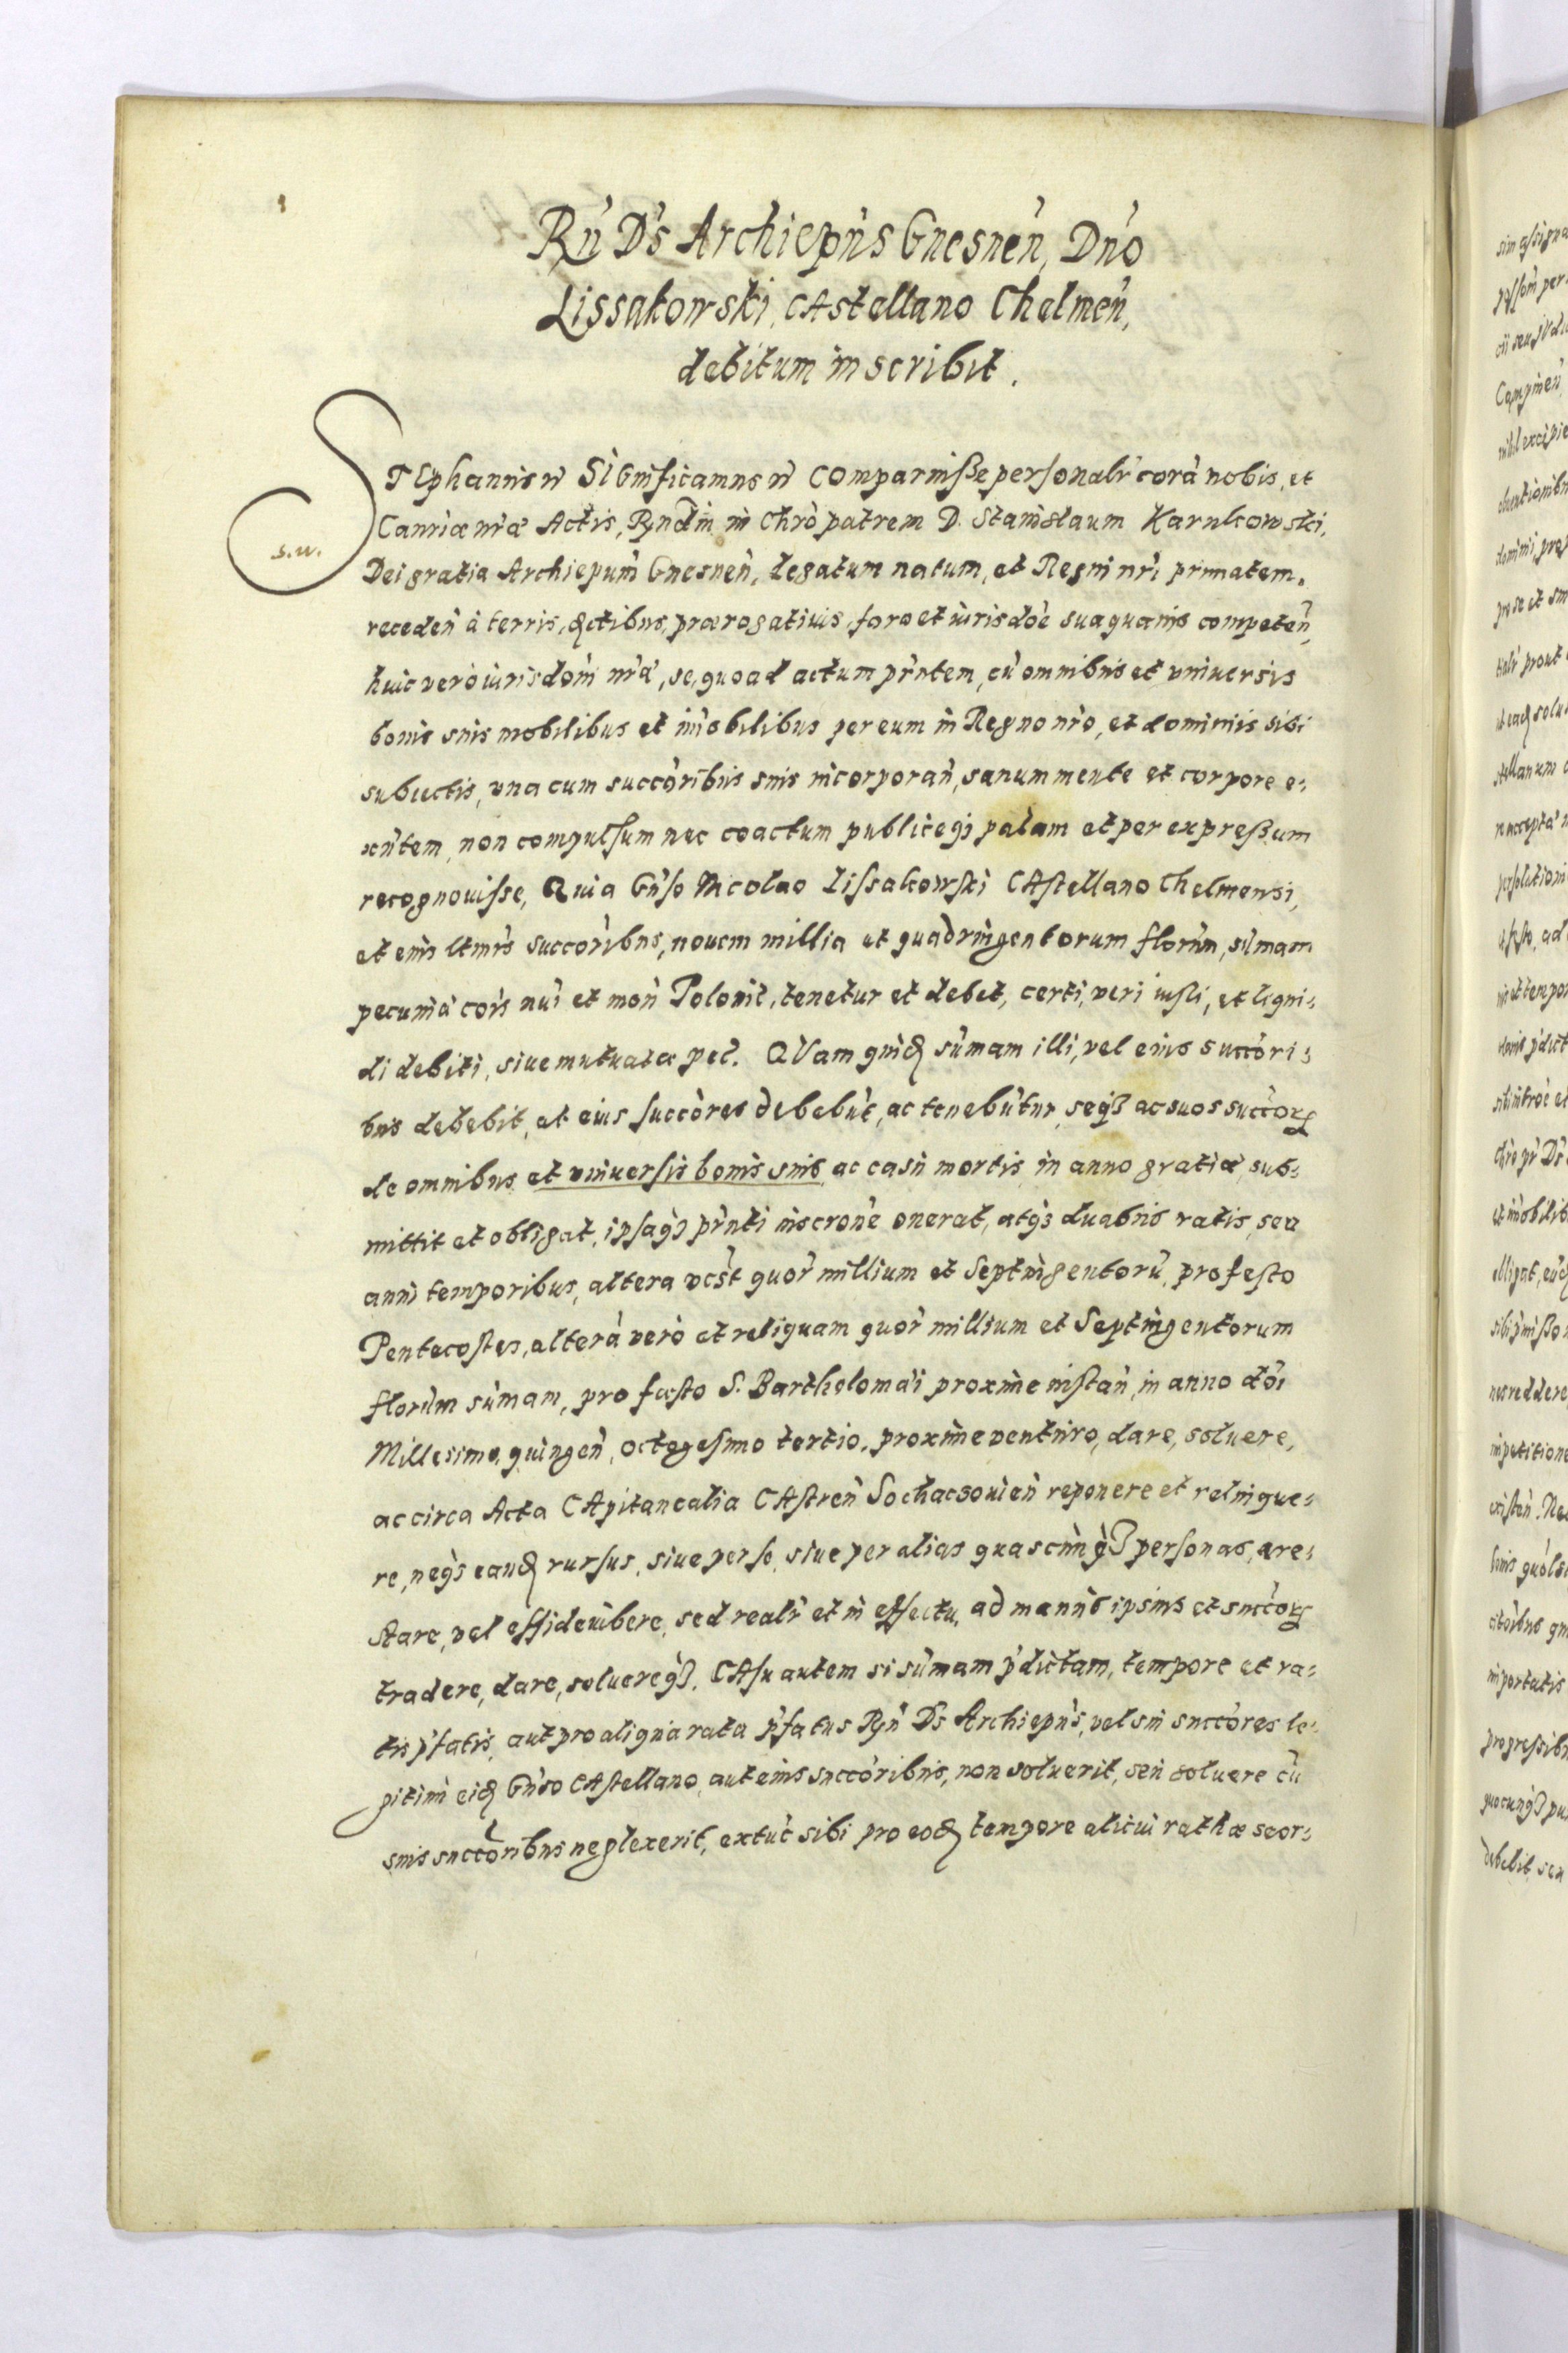 Rn̄ Ds Archiepūs Gnesnen̄, Dno
Lissakowski, CAstellano Chelmen̄,
debitum inscribit.
STEphanus etc̄ SIGnificamus etc̄ COmparuisse personalr̄ corā nobis, et
s.w.
Canriæ nr̄æ Actis, Rndm̄ in Chrō patrem D. Stanislaum Karnkowski,
Dei gratia Archiepum̄ Gnesnen̄, legatum natum, et Regni nr̄i primatem.
receden̄ à terris, dctibus, prærogatiuis, foro et iurisdōe sua quauis competen̄,
huic verò iurisdōni nr̄æ, se, quoad actum prn̄tem, cū omnibus et vniuersis
bonis suis mobilibus et im̄obilibus per eum in Regno nr̄o, et dominiis sibi
subiectis, vna cum succōribus suis incorporan̄, sanum mente et corpore e-
xn̄tem, non compulsum nec coactum publice qз palam et per expressum
recognouisse, Quia Gn̄so Nicolao Lissakowski CAstellano Chelmensi,
et eius ltmis succōribus, nouem millia et quadringentorum florn̄m, sūmam
pecuniæ cois nui et mon̄ Polonic, tenetur et debet, certi, veri iusti, et liqui-
di debiti, siue mutuatæ pec. QVam quidē sūmam illi, vel eius succōri-
bus debebit, et eius succōres debebūt, ac tenebūtur, seqз ac suos succōꝝ
de omnibus et vniuersis bonis suis, ac casu mortis in anno gratiæ, sub-
mittit et obligat, ipsaqз prn̄ti inscrōne onerat, atqз duabus ratis, seu
anni temporibus, altera vcꝫt quor millium et Septingentorū, pro festo
Pentecostes, alterā verò et reliquam quor millium et Septingentorum
florn̄m sūmam, pro fæsto S. Bartholomæi proxime instan̄, in anno dōi
Millesimo, quingen̄, octogesimo tertio, proxime venturo, dare, soluere,
ac circa Acta CApitanealia CAstren̄ Sochaczouien̄ reponere et relinque-
re, neqз eandē rursus, siue per se, siue per alias quascunqз personas, are-
stare, vel effidcuibere, sed realr̄ et in effectu, ad manus ipsius et succōꝝ
tradere, dare, soluereqз. CAsu autem si sūmam pdictam, tempore et ra-
tis pfatis, aut pro aliqua rata pfatus Rn̄ Ds Archiepūs, vel sui succōres le-
gitimi eidē Gn̄so CAstellano, aut eius succōribus, non soluerit, seu soluere cū
suis succōribus neglexerit, extūc sibi pro eodē tempore alicui rathæ seor-